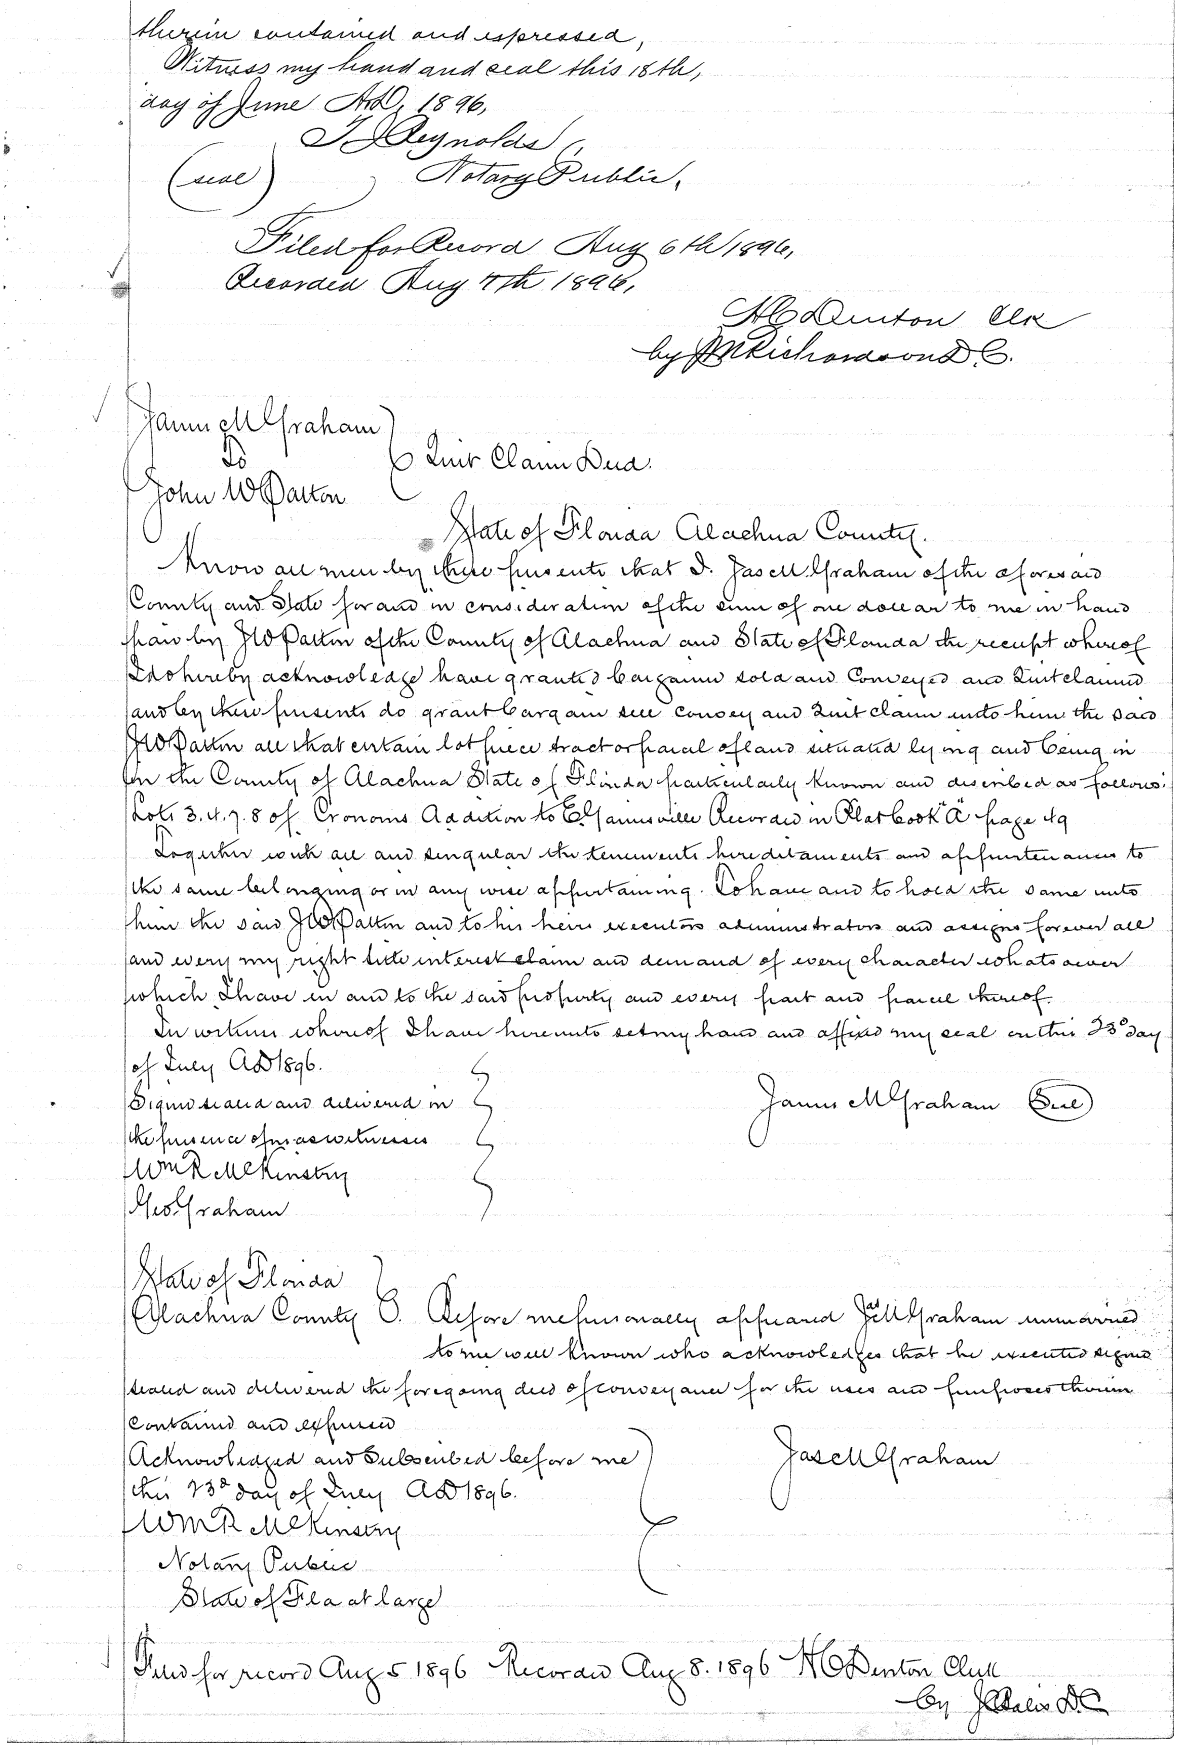 therein contained and expressed,
Witness my hand and seal this 18th,
day of June A.D. 1896,
T J Reynolds,
(seal) Notary Public,
Filed for Record Aug 6th 1896,
Recorded Aug 7th 1896,
H C Denton Clk
by J M Richardson D. C.
James M Graham
To Quit Claim Deed.
John W Patton
State of Florida Alachua County.
Know all men by these presents that I. Jas M. Graham of the aforesaid
County and State for and in consideration of the sum of one dollar to me in hand
paid by J W Patton of the County of Alachua and State of Florida the receipt whereof
I do hereby acknowledge have granted bargained sold and Conveyed and Quit claimed
and by these presents do grant bargain sell convey and Quit claim unto him the said
J W Patton all that certain lot piece tract or parcel of land situated lying and being in
in the County of Alachua State of Florida particularly known and described as follows:
Lots 3. 4. 7. 8 of Addition to E Gainesville Recorded in Plat book "A" page 49
Together with all and singular the tenements hereditaments and appurtenances to
the same belonging or in any wise appertaining. To have and to hold the same unto
him the said J W Patton and to his heirs executors administrators and assigns forever all
and every my right title interest claim and demand of every character whatsoever
which I have in and to the said property and every part and parcel thereof.
In witness whereof I have hereunto set my hand and affixed my seal on this 23d day
of July AD 1896.
Signed sealed and delivered in James M Graham (Seal)
the presence of us as witnesses
Wm R McKinstry
Geo Graham
State of Florida
Alachua County Before me personally appeared Jas M Graham unmarried
to me well known who acknowledges that he executed signed
sealed and delivered the foregoing deed of conveyance for the uses and purposes therein
Contained and expressed
Acknowledged and Subscribed before me Jas M Graham
this 23d day of July AD 1896.
Wm R McKinstry
Notary Public
State of Fla at large
Filed for record Aug 5 1896 Recorded Aug 8. 1896 H C Denton Clerk
by D. C.